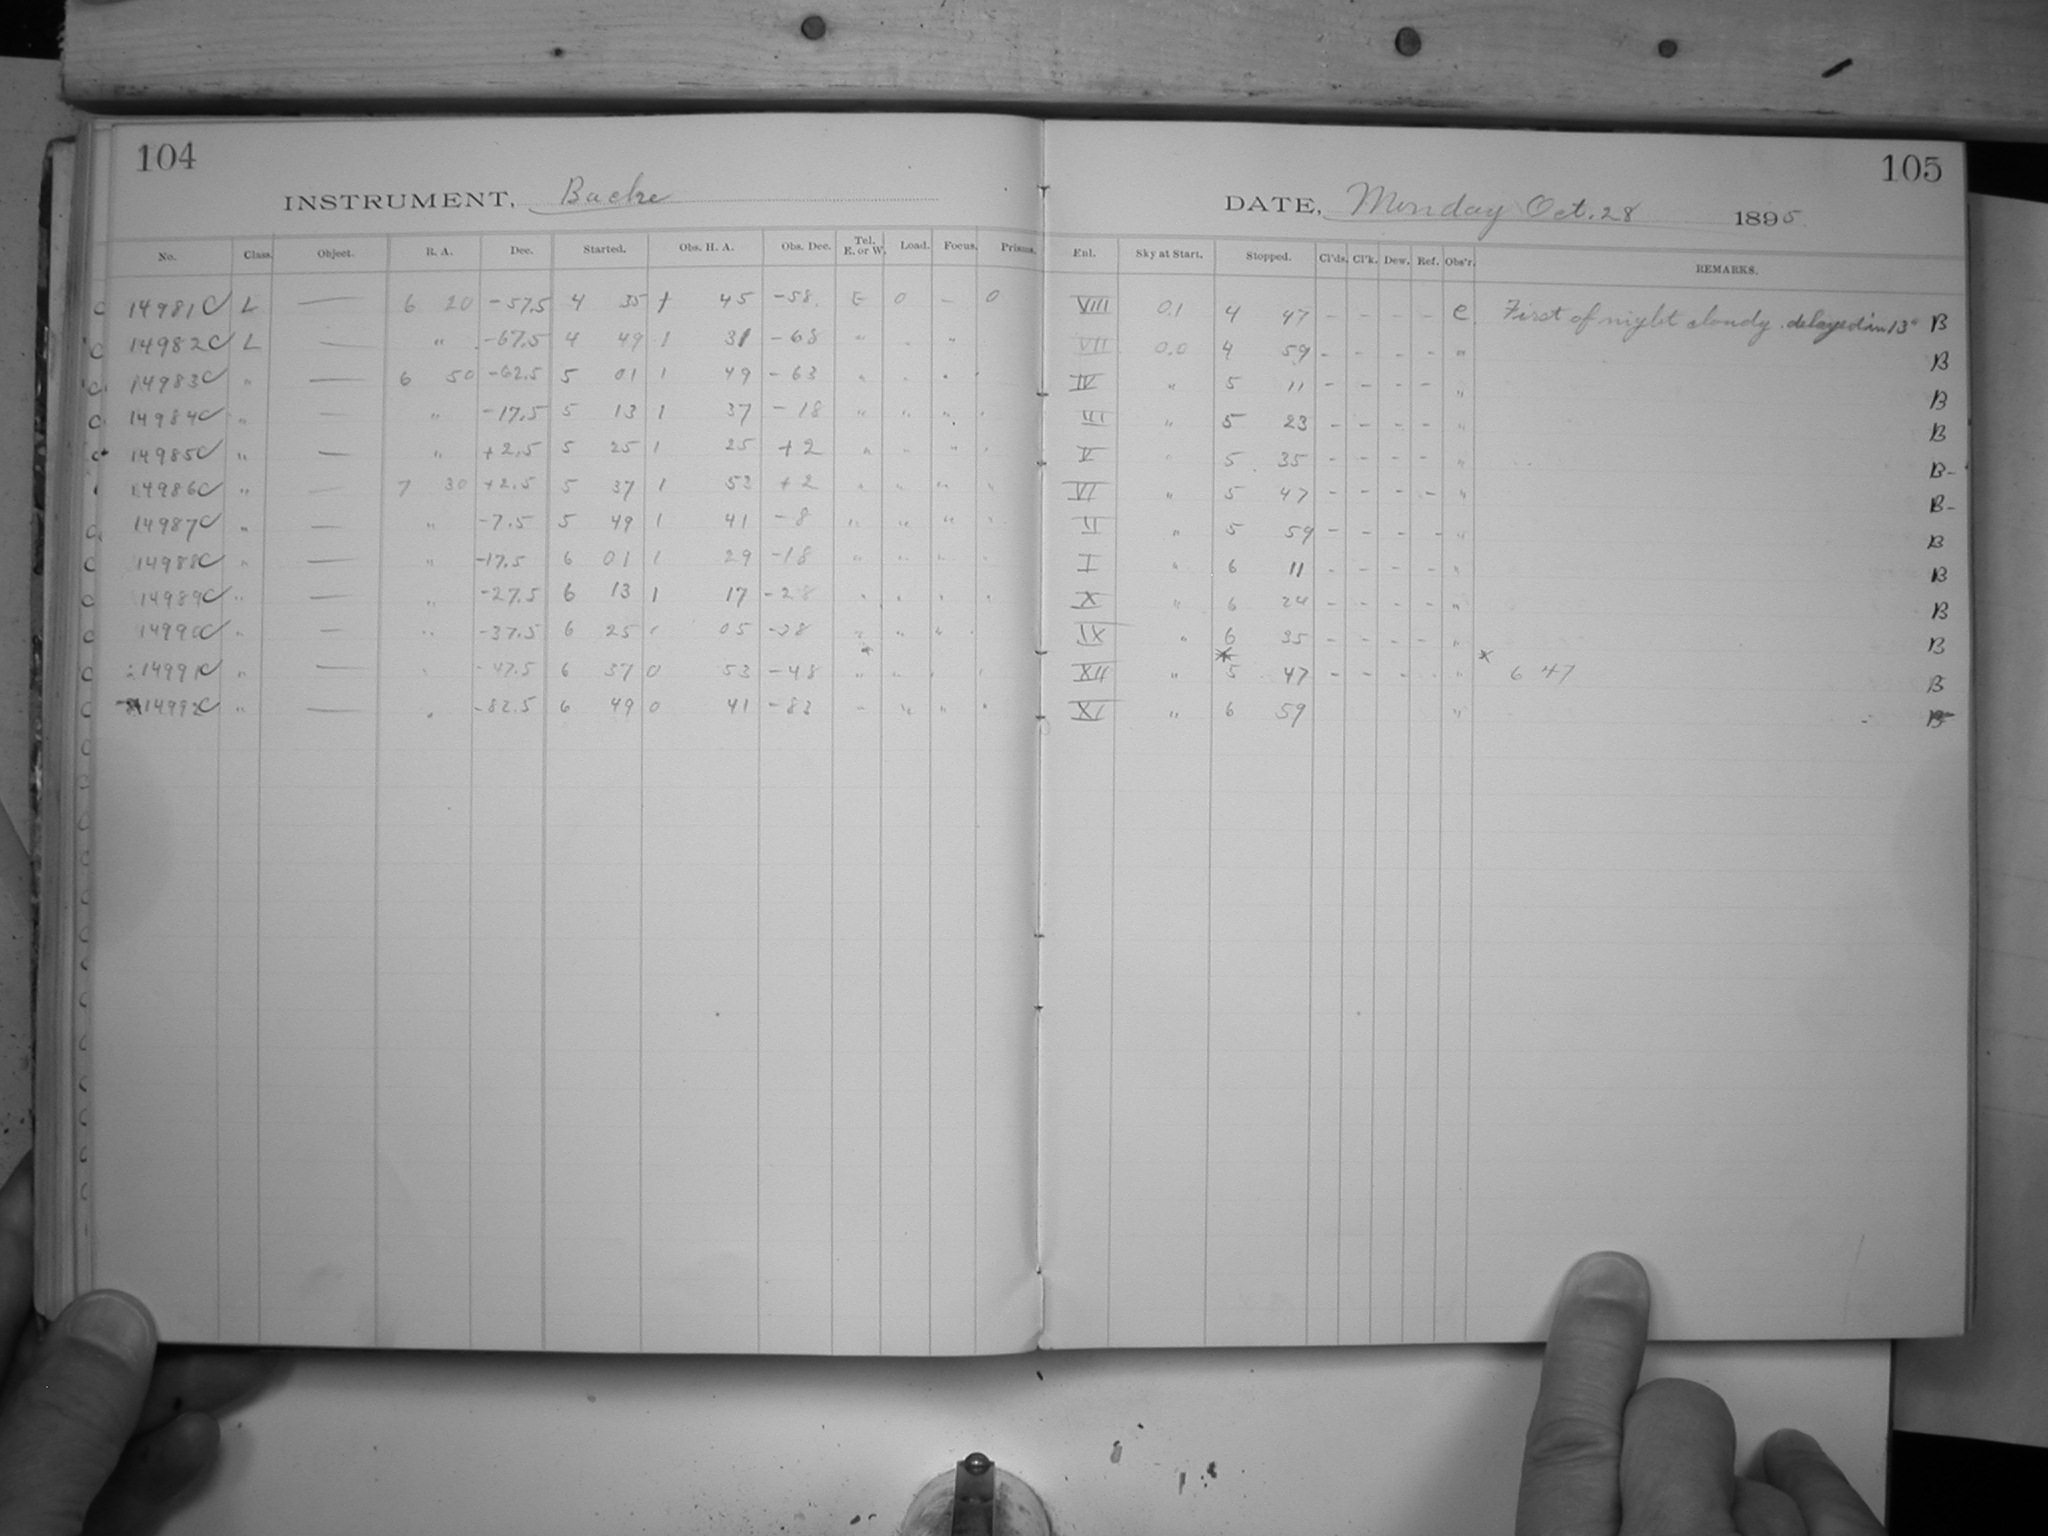 104
INSTRUMENT, Bache
No. Class. Object. R. A. Dec. Started. Obs. H. A. Obs. Dec. Tel. E. or W. Load. Focus. Prisms.
C 14981 C L — 6 20 -57.5 4 35 1 45 -58. E 0 - 0
C 14982 C L — " -67.5 4 49 1 31 -68 " . "
C 14983 C " — 6 50 -62.5 5 01 1 49 -63 " . . '
C 14984 C " — " -17.5 5 13 1 37 -18 " " " .
C 14985 C " — " +2.5 5 25 1 25 +2 " . " .
14986 C " — 7 30 +2.5 5 37 1 53 +2 " " " "
C 14987 C " — " -7.5 5 49 1 41 -8 " " " .
C 14988 C " — " -17.5 6 01 1 29 -18 " " . .
C 14989 C " — " -27.5 6 13 1 17 -28 . . . .
C 14990 C " — " -37.5 6 25 1 05 -38 " " " .
C 14991 C " — . -47.5 6 37 0 53 -48 " " . .
C 14992 C " — . -82.5 6 49 0 41 -83 - " " .
105
DATE, Monday Oct. 28 1895
Enl. Sky at Start. Stopped. Cl'ds. Cl'k. Dew. Ref. Obs'r. REMARKS.
VIII 0.1 4 47 - - - - C. First of night cloudy. delayed in 13" B
VII 0.0 4 59 - - - - " B
IV " 5 11 - - - - " B
III " 5 23 - - - - " B
V " 5 35 - - - - " B-
VI " 5 47 - - - - " B-
II " 5 59 - - - - " B
I " 6 11 - - - - " B
X " 6 24 - - - - " B
IX " 6 35 - - - - " B
XII " * 5 47 - - - - " * 6 47 B
XI " 6 59 " B